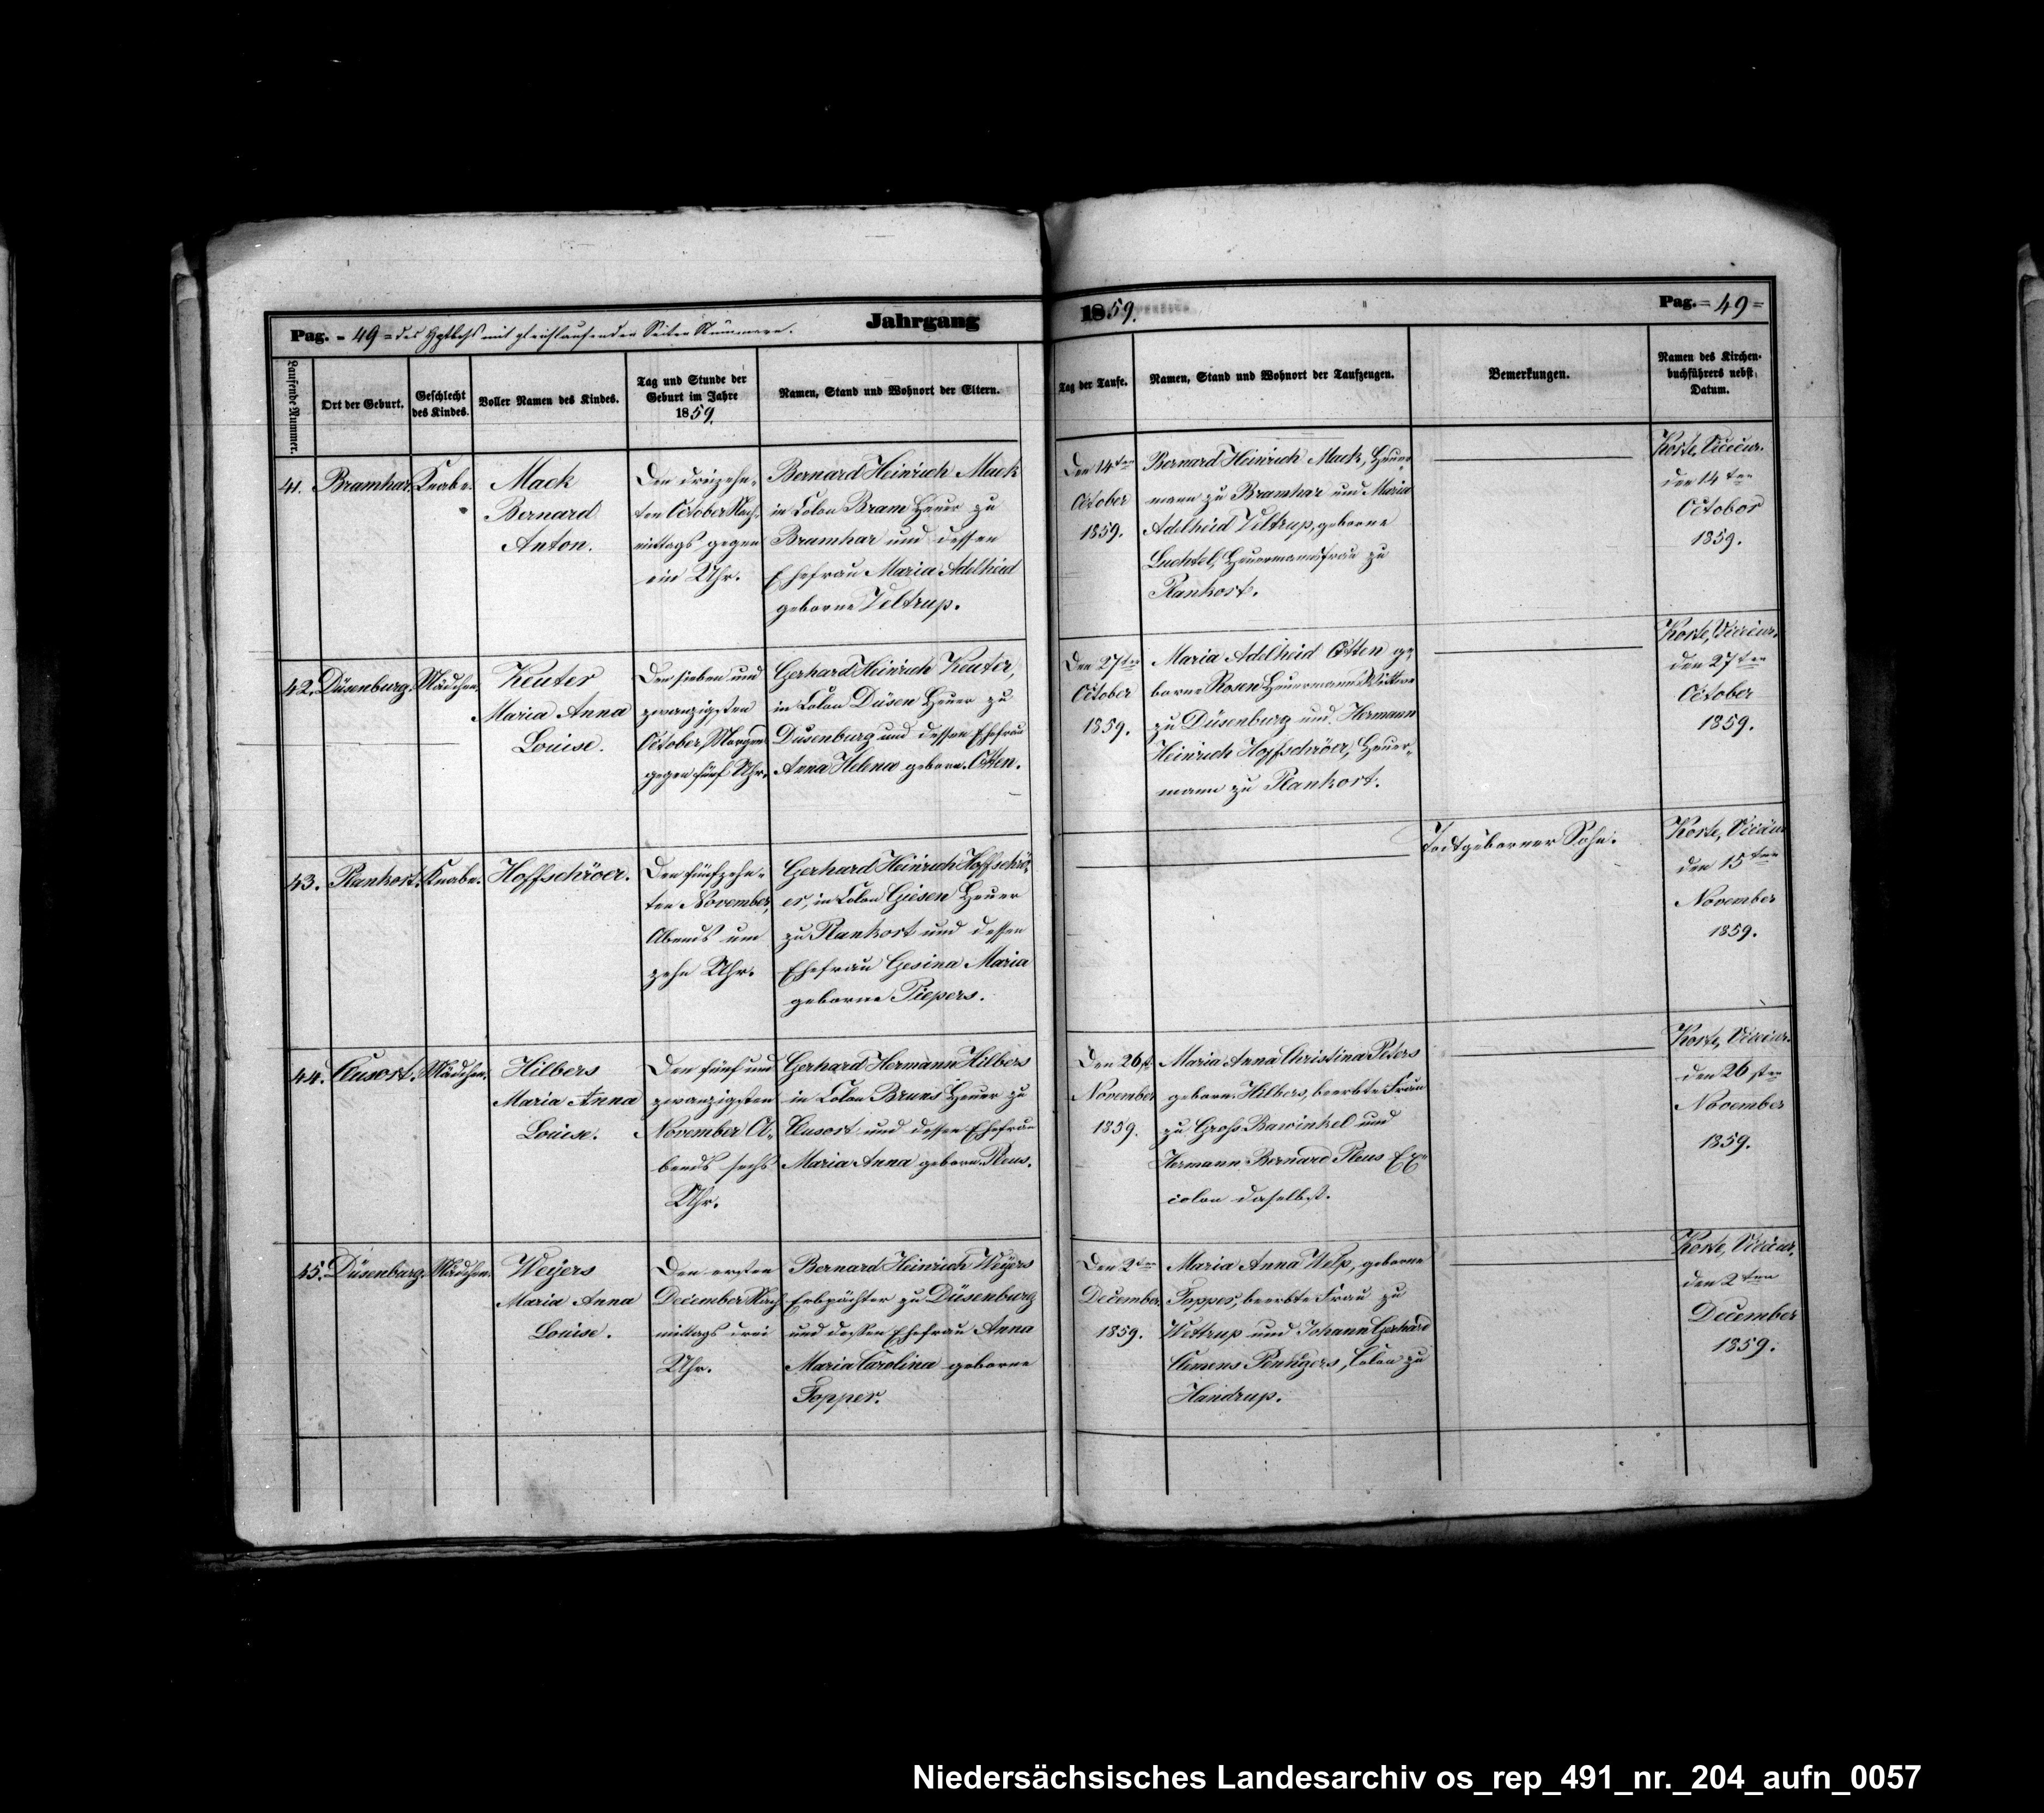 Pag. - 49 = des Hptbchs mit gleichlaufenden Seiten Nummern.
Jahrgang
1859.
Pag. = 49 =
Laufende Nummer.
Ort der Geburt.
Geschlecht
des Kindes.
Voller Namen des Kindes.
Tag und Stunde der
Geburt im Jahre
1859.
Namen, Stand und Wohnort der Eltern.
Tag der Taufe.
Namen, Stand und Wohnort der Taufzeugen.
Bemerkungen.
Namen des Kirchen-
buchführers nebst
Datum.
41.
Bramhar.
Knabe.
Mack
Bernard
Anton.
Den dreizehn-
ten October Nach-
mittags gegen
ein Uhr.
Bernard Heinrich Mack
in Colon Bram Heuer zu
Bramhar und dessen
Ehefrau Maria Adelheid
geborne Veltrup.
Den 14ten
October
1859.
Bernard Heinrich Mack, Heuer-
mann zu Bramhar und Maria
Adelheid Veltrup, geborne
Luchtel, Heuermannsfrau zu
Plankort.
Korte, Vicecur.
den 14ten
October
1859.
42.
Düsenburg.
Mädchen.
Keuter
Maria Anna
Louise.
Den sieben und
zwanzigsten
October, Morgens
gegen fünf Uhr.
Gerhard Heinrich Keuter,
in Colon Düsen Heuer zu
Düsenburg und dessen Ehefrau
Anna Helena geborn. Otten.
Den 27ten
October
1859.
Maria Adelheid Otten ge-
borne Rosen Heuermanns Wittwe
zu Düsenburg und Hermann
Heinrich Hoffschröer, Heuer-
mann zu Plankort.
Korte, Vicecur.
den 27ten
October
1859.
43.
Plankort.
Knabe.
Hoffschröer.
Den fünfzehn-
ten November,
Abends um
zehn Uhr.
Gerhard Heinrich Hoffschrö-
er, in Colon Giesen Heuer
zu Plankort und dessen
Ehefrau Gesina Maria
geborne Piepers.
Todtgeborner Sohn.
Korte, Vicecur.
den 15ten
November
1859.
44.
Clusort.
Mädchen.
Hilbers
Maria Anna
Louise.
Den fünf und
zwanzigsten
November A-
bends sechs
Uhr.
Gerhard Hermann Hilbers
in Colon Bruns Heuer zu
Clusort und dessen Ehefrau
Maria Anna geborn. Pleus.
Den 26st.
November
1859.
Maria Anna Christina Peters
geborn. Hilbers, beerbte Frau
zu Groß Bawinkel und
Hermann Bernard Pleus Ex-
colon daselbst.
Korte, Vicecur.
den 26sten
November
1859.
45.
Düsenburg.
Mädchen.
Weÿers
Maria Anna
Louise.
Den ersten
December Nach-
mittags drei
Uhr.
Bernard Heinrich Weÿers
Erbpächter zu Düsenburg
und dessen Ehefrau Anna
Maria Carolina geborne
Topper.
Den 2ten
December
1859.
Maria Anna Welp, geborne
Topper, beerbte Frau zu
Wettrup und Johann Gerhard
Clemens Penningers, Colon zu
Handrup.
Korte, Vicecur.
den 2ten
December
1859.
Niedersächsisches Landesarchiv os_rep_491_nr._204_aufn_0057